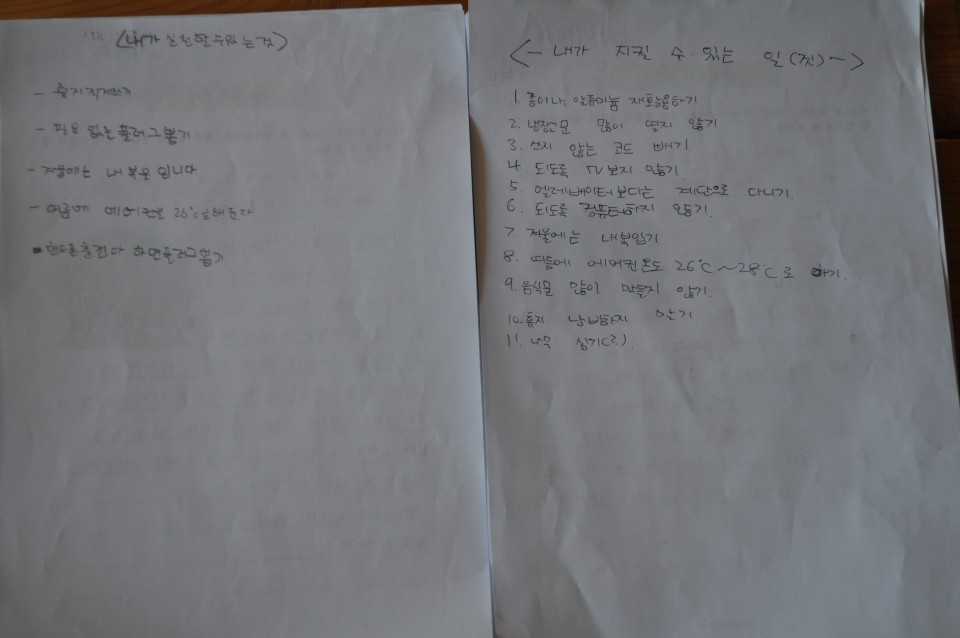 <내가 실천할 수 있는 것>
- 휴지 적게쓰기
- 필요 없는 플러그 뽑기
- 겨울에는 내복을 입니다
- 여름에 에어컨을 26°C로 해 둔다
핸드폰 충전 다 하면 플러그 뽑기
<- 내가 지킬 수 있는 일(것) ->
1. 종이나 알류미늄 재활용하기.
2. 냉장고 문 많이 열지 않기.
3. 쓰지 않는 코드 빼기
4. 되도록 TV 보지 않기.
5. 엘레베이터 보다는 계단으로 다니기.
6. 되도록 컴퓨터하지 않기.
7. 겨울에는 내복입기
8. 여름에 에어컨 온도 26°C~28°C로 하기.
9. 음식물 많이 만들지 않기.
10. 휴지 낭비하지 않기.
11. 나무 심기(?)